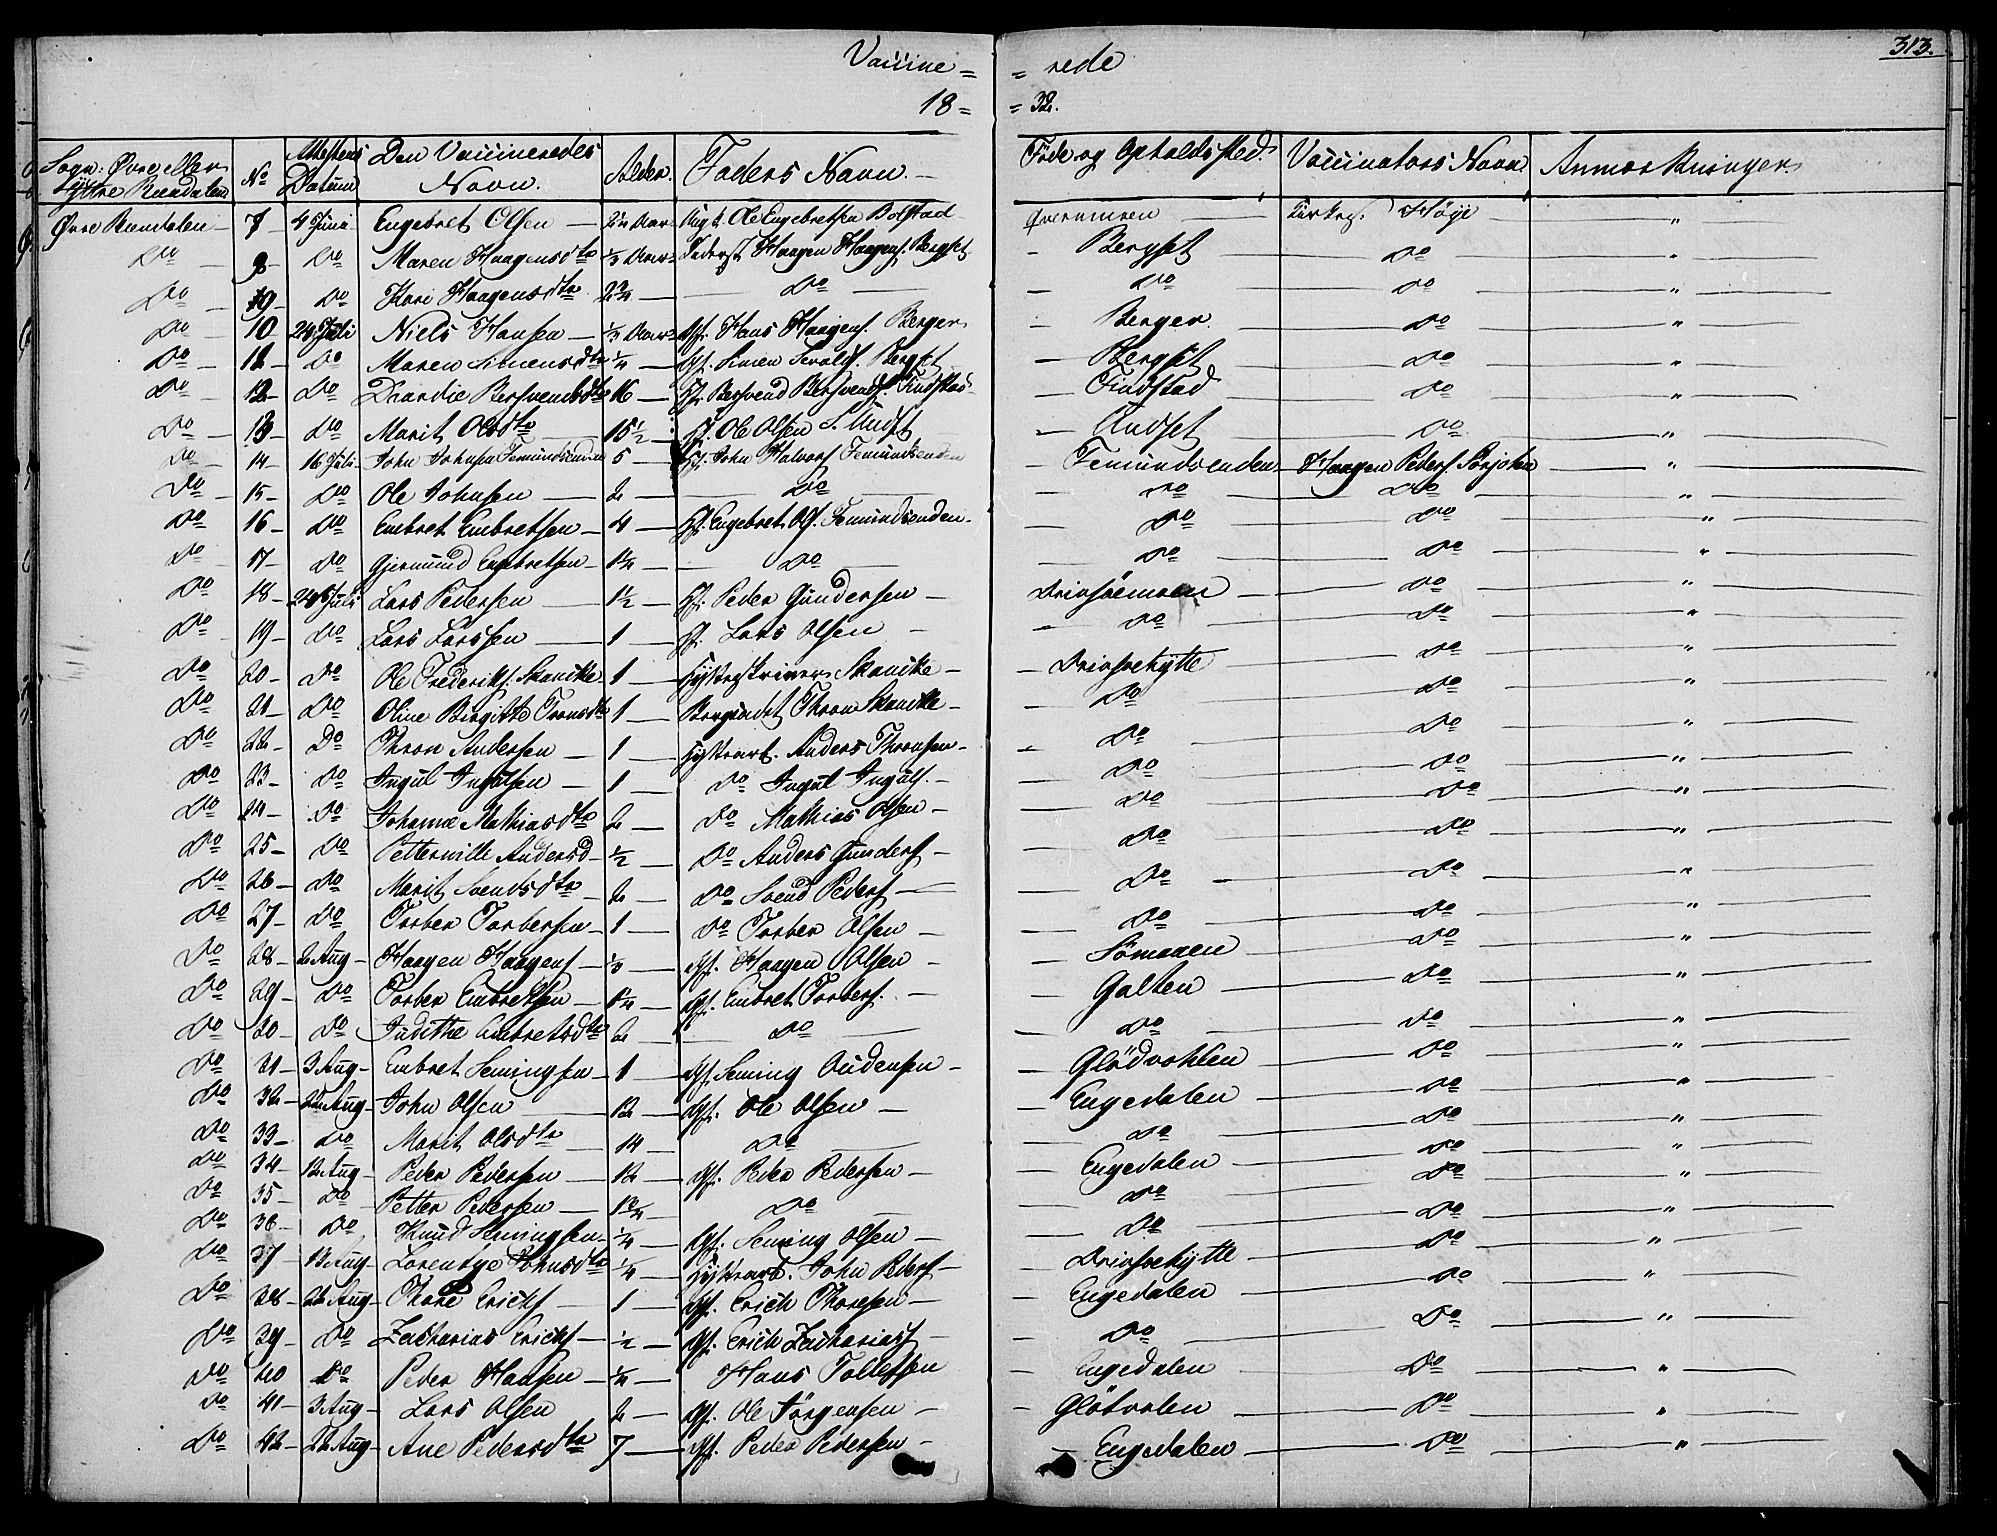 313.
Vaccine= =rede
18= =32.
Sogn: Øvre eller Yttre Rendalen | No | Attestens Datum | Den Vaccineredes Navn. | Alder. | Faders Navn. | Føde og Opholdssted. | Vaccinators Navn | Anmærkninger
Øvre Rendalen | 7 | 4 Juni | Engebret Olsen | Ole Engebretsen Bolstad | Qvernmoen | Kirkes. Høye | "
Do | 8 | Do | Maren Haagensdtr | 1/3 Aar | Haagen Haagens. Bergset | Bergset | Do | "
Do | 9 | Do | Kari Haagensdtr | 2 3/4 | Do | Do | Do | "
Do | 10 | 24 Juli | Niels Hansen | 1/3 Aar | Gf. Hans Haagens. Berger | Berger | Do | "
Do | 11 | Do | Maren Simensdtr | 1/4 | Gf. Simen Bergset | Bergset | Do | "
Do | 12 | Do | Bersvendsdtr | 16 | Bersvend Bersvends. Finstad | Finstad | Do | "
Do | 13 | Do | Marit Olsdtr | 15 1/2 | Ole Olsen Undset | Undset | Do | "
Do | 14 | 16 Juli | John Johnsen Femundsenden | 5 | John Halvors. Femundsenden | Femundsenden | Haagen Peders. | "
Do | 15 | Do | Ole Johnsen | 2 | Do | Do | Do | "
Do | 16 | Do | Embret Embretsen | 4 | Engebret Ols. Femundsenden | Do | Do | "
Do | 17 | Do | Gjermund Embretsen | 1 1/4 | Do | Do | Do | "
Do | 18 | Juli | Lars Pedersen | 1 1/2 | Peder Gundersen | Drivsøemoen | Do | "
Do | 19 | Do | Lars Larssen | 1 | Lars Olsen | Do | Do | "
Do | 20 | Do | Ole Frederiks. Skancke | 1 | Hytteskriver Skancke | Drivsøehytte | Do | "
Do | 21 | Do | Oline Birgitte Tronsdtr | 1 | Thron Skancke | Do | Do | "
Do | 22 | Do | Thron Andersen | 1 | Hyttearb. Anders Thronsen | Do | Do | "
Do | 23 | Do | Ingul Ingulsen | 1 | Do Ingul Inguls. | Do | Do | "
Do | 24 | Do | Johanne Mathiasdtr | 2 | Do Mathias Olsen | Do | Do | "
Do | 25 | Do | Petternille Andersd | 1/2 | Do Anders Gunders. | Do | Do | "
Do | 26 | Do | Marit Svendsdtr | 2 | Do Svend Peders. | Do | Do | "
Do | 27 | Do | Torber Torbersen | 1 | Do Torber Olsen | Do | Do | "
Do | 28 | 2 Aug | Haagen Haagens. | 1/3 | Gf. Haagen Olsen | Sømaaen | Do | "
Do | 29 | Do | Torber Embretsen | 1/4 | Gf. Embret Torbers. | Galten | Do | "
Do | 30 | Do | Judithe Embretsdtr | 2 | Do | Do | Do | "
Do | 31 | 3 Aug | Embret Semingsen | 1 | Gf. Seming Audensen | Glödvohlen | Do | "
Do | 32 | 12 Aug | John Olsen | 12 | Gf. Ole Olsen | Engedalen | Do | "
Do | 33 | Do | Marit Olsdtr | 14 | Do | Do | Do | "
Do | 34 | 12 Aug | Peder Pedersen | 12 | Gf. Peder Pedersen | Engedalen | Do | "
Do | 35 | Do | Petter Pedersen | Do | Do | Do | "
Do | 36 | Do | Knud Semingsen | 1/4 | Gf. Seming Olsen | Do | Do | "
Do | 37 | 13 Aug | Lorentze Johnsdtr | 1/4 | Hyttearb. John Peders. | Drivsøehytte | Do | "
Do | 38 | 22 Aug | Thore Ericks. | 1 | Gf. Erich Thoresen | Engedalen | Do | "
Do | 39 | Do | Zacharias Ericks. | 1/2 | Gf. Erich Zacharias. | Do | Do | "
Do | 40 | Do | Peder Hansen | 1/4 | Hans Tollefsen | Engedalen | Do | "
Do | 41 | 3 Aug | Lars Olsen | 2 | Gf. Ole Jörgensen | Glötvolen | Do | "
Do | 42 | 22 Aug | Ane Pedersdtr | 7 | Gf. Peder Pedersen | Engedalen | Do | "